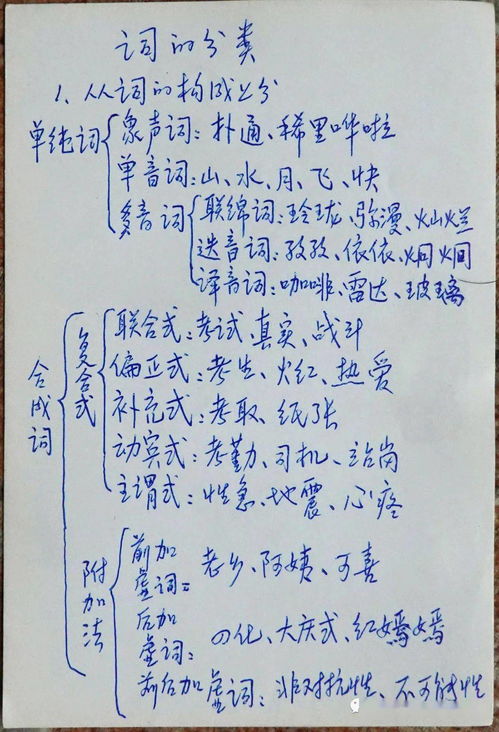 词的分类
1、从词的构成上分
单纯词
象声词：扑通、稀里哗啦
单音词：山、水、月、飞、快
多音词
联绵词：玲珑、弥漫、灿烂
迭音词：孜孜、依依、炯炯
译音词：咖啡、雷达、玻璃
合成词
复合式
联合式：考试、真实、战斗
偏正式：考生、火红、热爱
补充式：考取、纸张
动宾式：考勤、司机、站岗
主谓式：性急、地震、心疼
附加法
前加虚词：老乡、阿姨、可喜
后加虚词：四化、大庆式、红嫣嫣
前后加虚词：非对抗性、不可能性